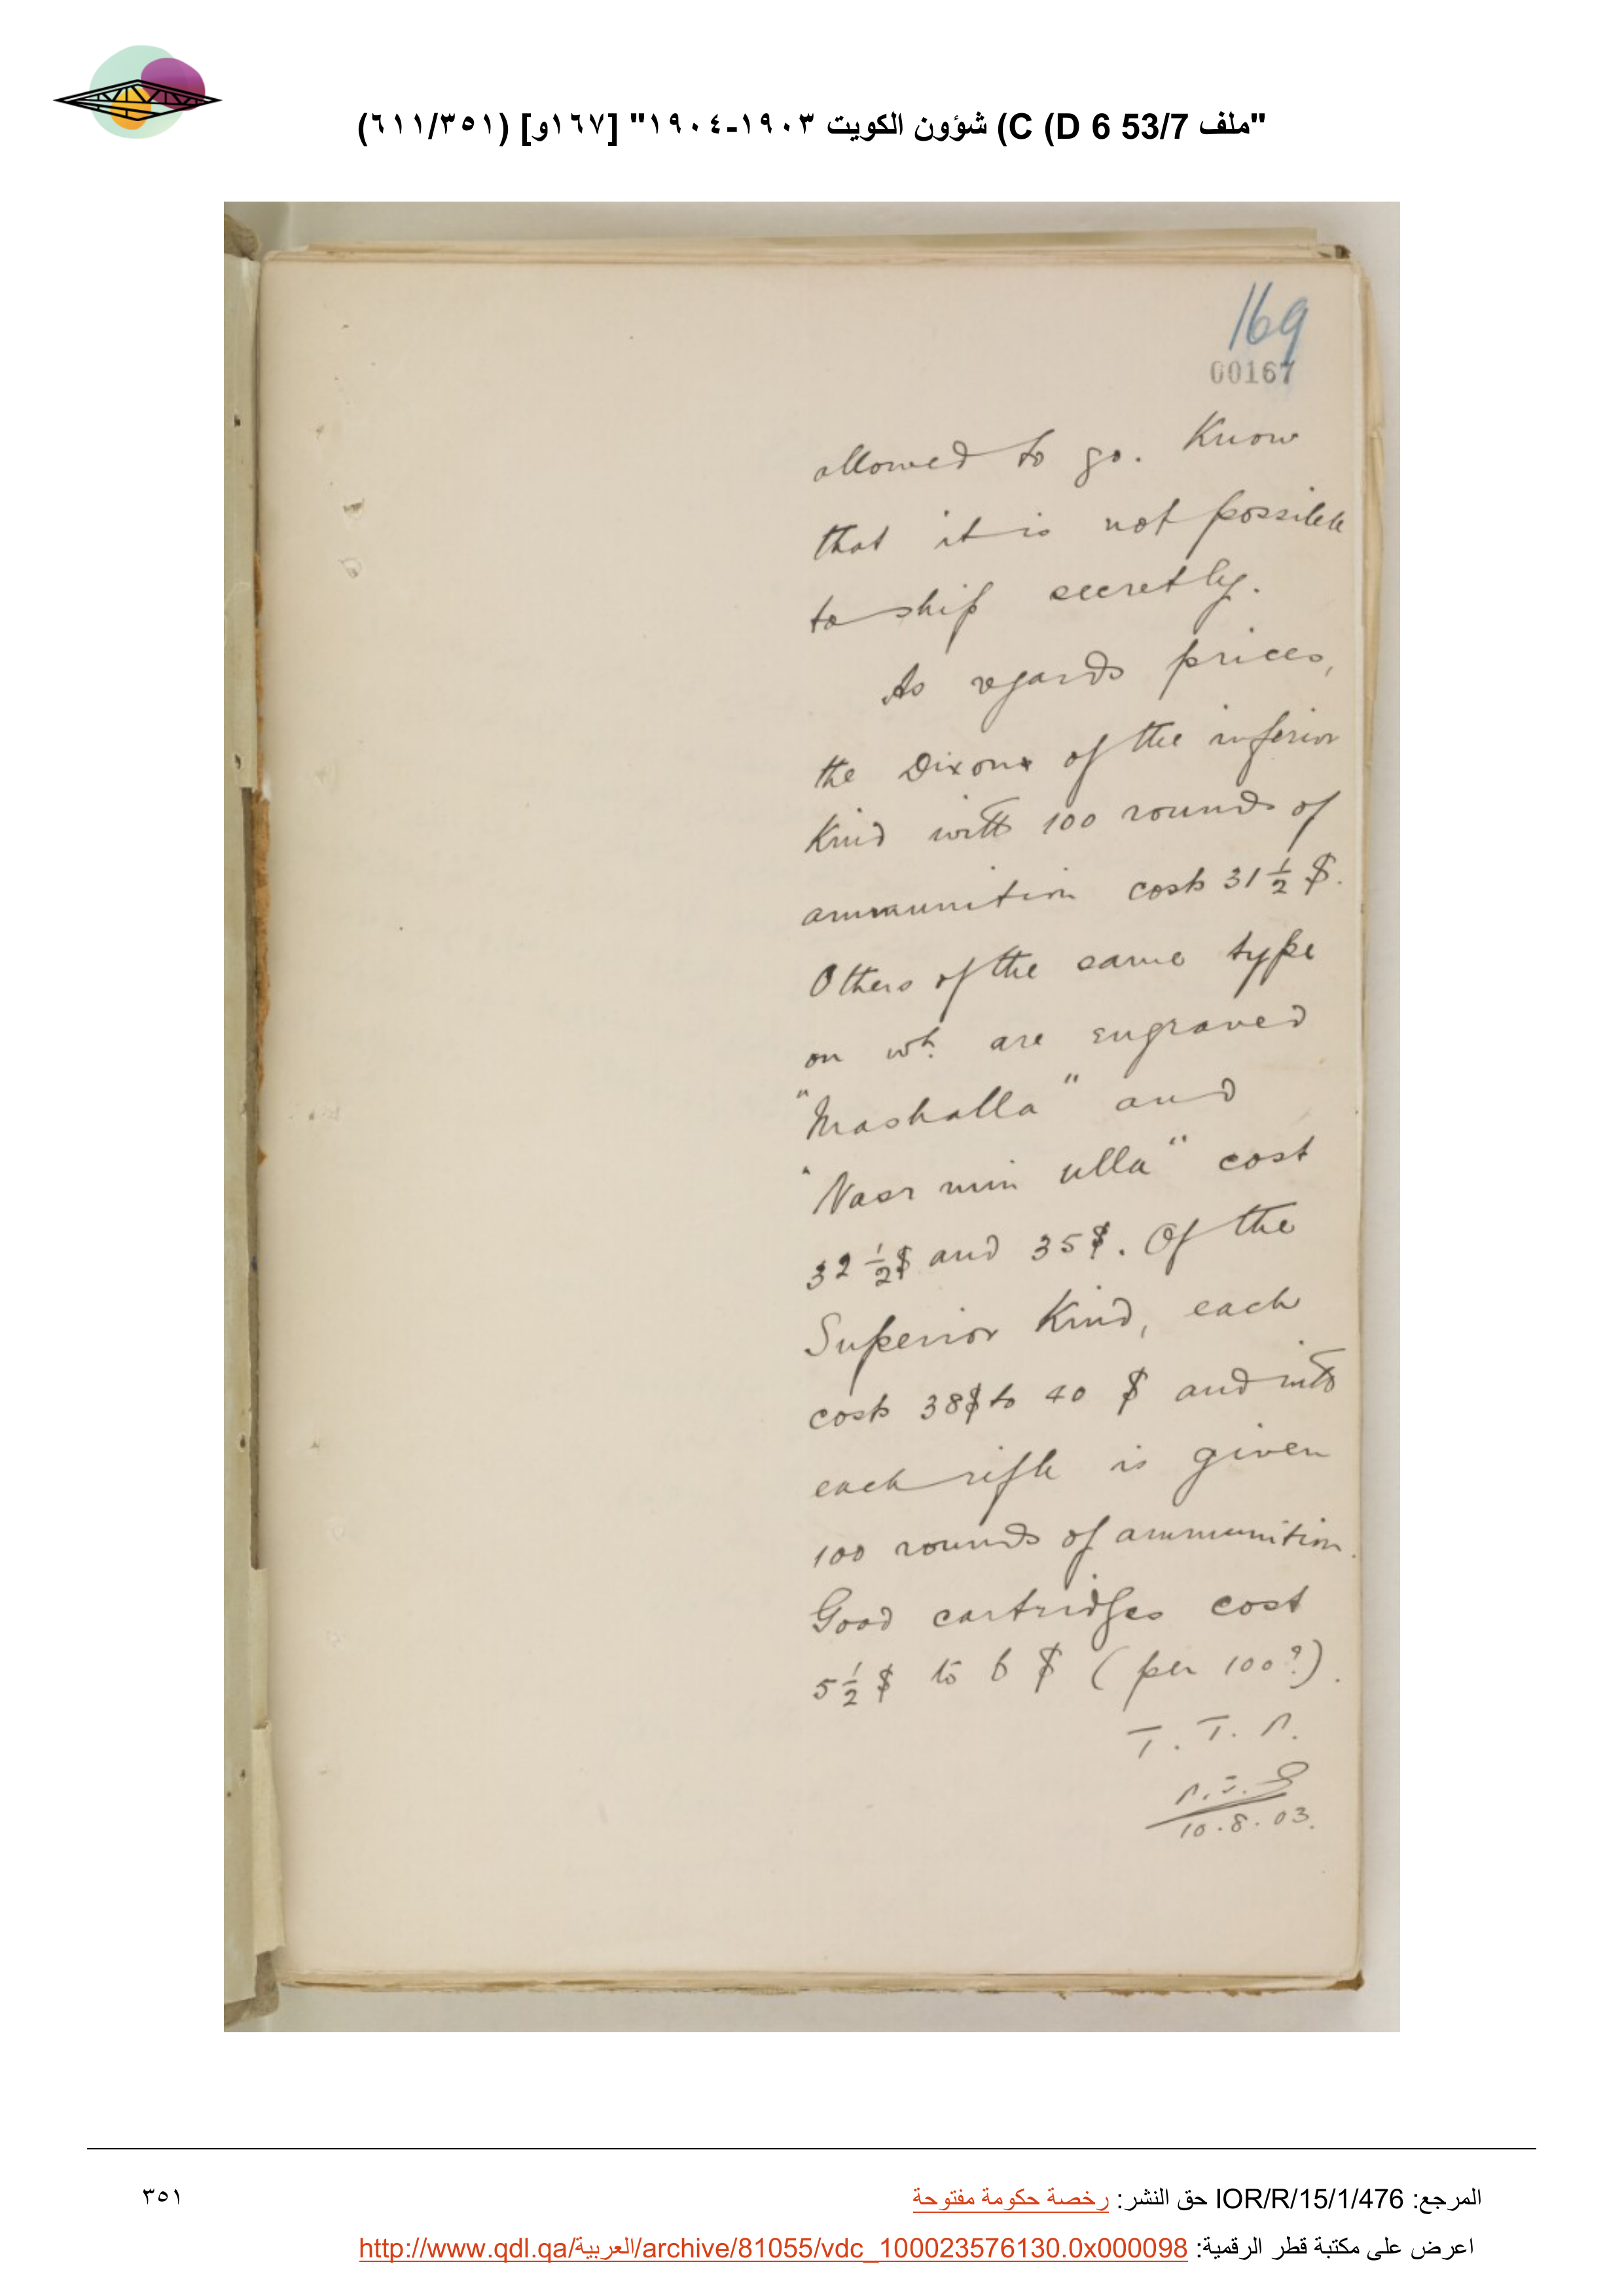 "ملف C (D 6 53/7) شؤون الكويت ١٩٠٣-١٩٠٤" [١٦٧و] (٦١١/٣٥١)
169
00167
allowed to go. Know
that it is not possible
to ship secretly.
As regards prices,
the Dixons of the inferior
Kind with 100 rounds of
ammunition costs 31 1/2 $.
Others of the same type
on wh. are engraved
"Mashalla" and
"Nasr min ulla" cost
32 1/2 $ and 35 $. Of the
Superior Kind, each
costs 38 $ to 40 $ and with
each rifle is given
100 rounds of ammunition.
Good cartridges cost
5 1/2 $ to 6 $ (per 100?).
10.8.03.
المرجع: IOR/R/15/1/476 حق النشر: رخصة حكومة مفتوحة
٣٥١
اعرض على مكتبة قطر الرقمية: http://www.qdl.qa/العربية/archive/81055/vdc_100023576130.0x000098